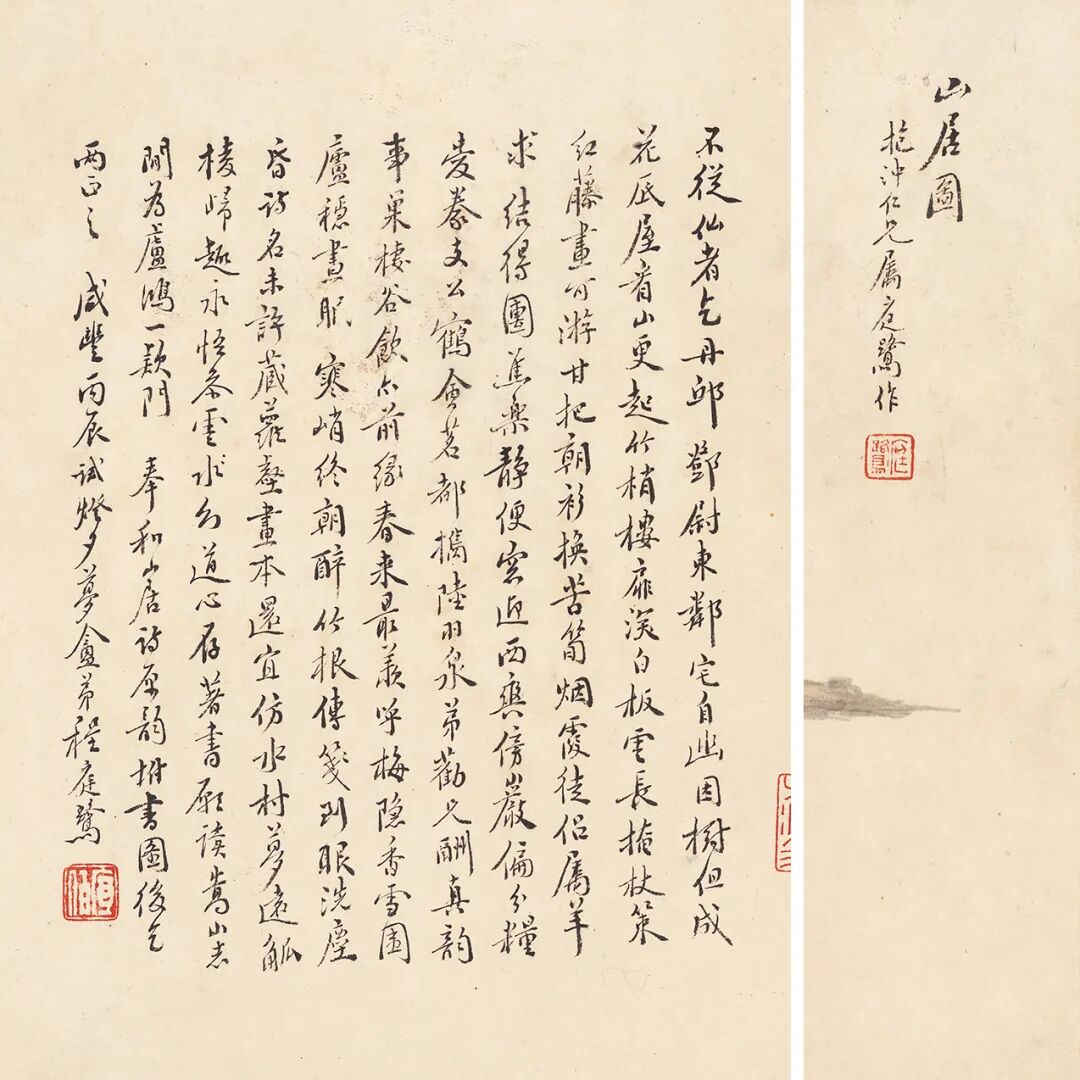 山居圖
抱沖仁兄属庭鷺作
庭鷺
不從仙者乞丹邱鄧尉東鄰宅自幽因樹但成
花底屋看山更起竹梢樓扉深白板雲長掩杖策
紅藤畫可游甘把朝衫換苦筍烟霞徒侣属羊
求 結得團蕉樂靜便窓迎西爽傍巖偏分糧
愛養支公鶴茗都攜陸羽泉弟勸兄酬真韵
事巢棲谷飲亦前緣春来最羡呼梅隐香雪圍
廬穩晝眠 寒峭終朝醉竹根傳箋到眼洗塵
昏詩名未許藏蘿壑畫本還宜仿水村夢遠觚
棱歸趣永悟參雲水幻道心存著書願讀嵩山志
閒為盧鴻一款門 奉和山居詩原韵坿書圖後乞
兩正之 咸豐丙辰試燈夕夢盦弟程庭鷺